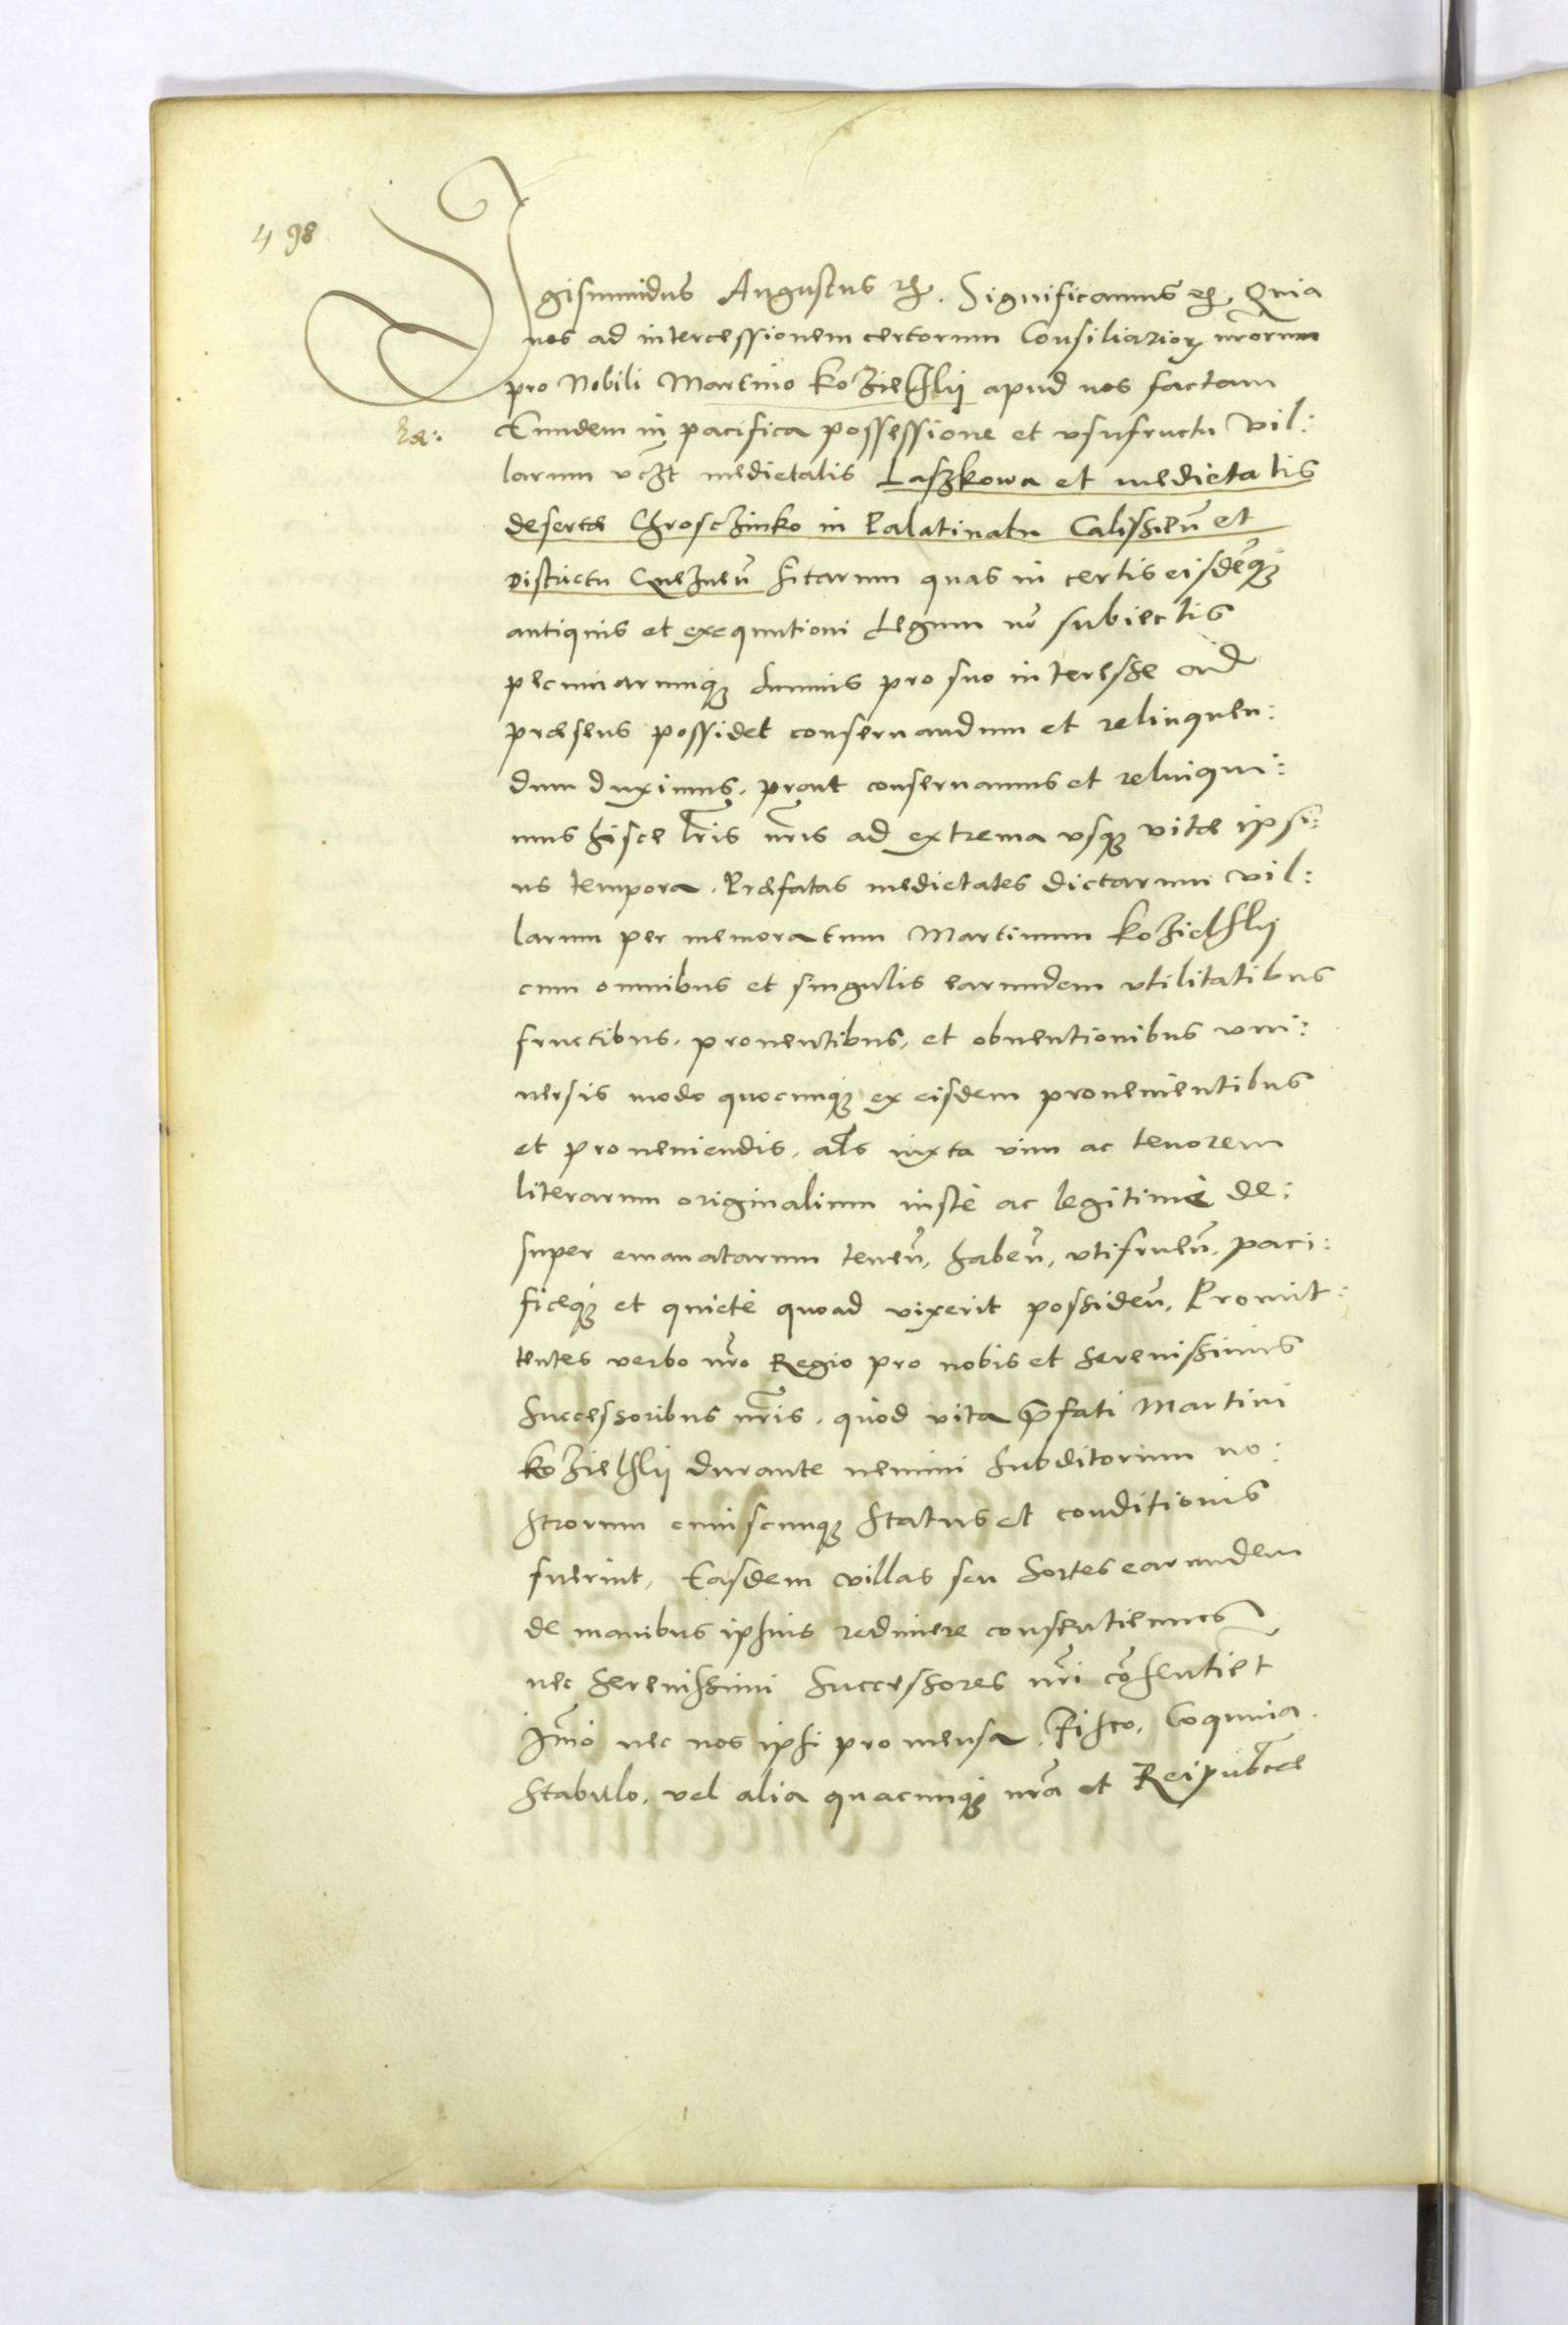 498
Sigismundus Augustus etc. Significamus etc. Quia
nos ad intercessionem certorum Consiliarioꝝ nr̃orum
pro Nobili Martino Kozielsky apud nos factam
Eundem in pacifica possessione et vsufructu vil:
larum vꝫt medietatis Laszkowa et medietatis
desertæ Chrosczinko in Palatinatu Calissieñ et
districtu Gnezneñ sitarum quas in certis eisdẽqꝫ
antiquis et exequutioni Legum nõ subiectis
pecuniarumqꝫ summis pro suo interesse ad
præsens possidet conseruandum et relinquen:
dum duximus, prout conseruamus et relinqui:
mus hisce lr̃is nr̃is ad extrema vsqꝫ vitæ ipsi:
us tempora. Præfatas medietates dictarum vil:
larum per memoratum Martinum Kozielsky
cum omnibus et singulis earundem vtilitatibus
fructibus, prouentibus, et obuentionibus vni:
uersis modo quocunqꝫ ex eisdem prouenientibus
et proueniendis, als iuxta vim ac tenorem
literarum originalium iustè ac legitimè de:
super emanatarum teneñ, habeñ, vtifrueñ, paci:
ficeqꝫ et quietè quoad vixerit possideñ, Promit:
tentes verbo nr̃o Regio pro nobis et Serenissimis
Successoribus nr̃is, quòd vita p̃fati Martini
Kozielsky durante nemini Subditorum no:
strorum cuiuscunqꝫ status et conditionis
fuerint, Easdem villas seu sortes earundem
de manibus ipsius redimere consentiemus
nec Serenissimi Successores nr̃i cõsentient
Im̃ò nec nos ipsi pro mensa, Fisco, Coquina
Stabulo, vel alia quacunqꝫ nr̃a et Reipublicæ